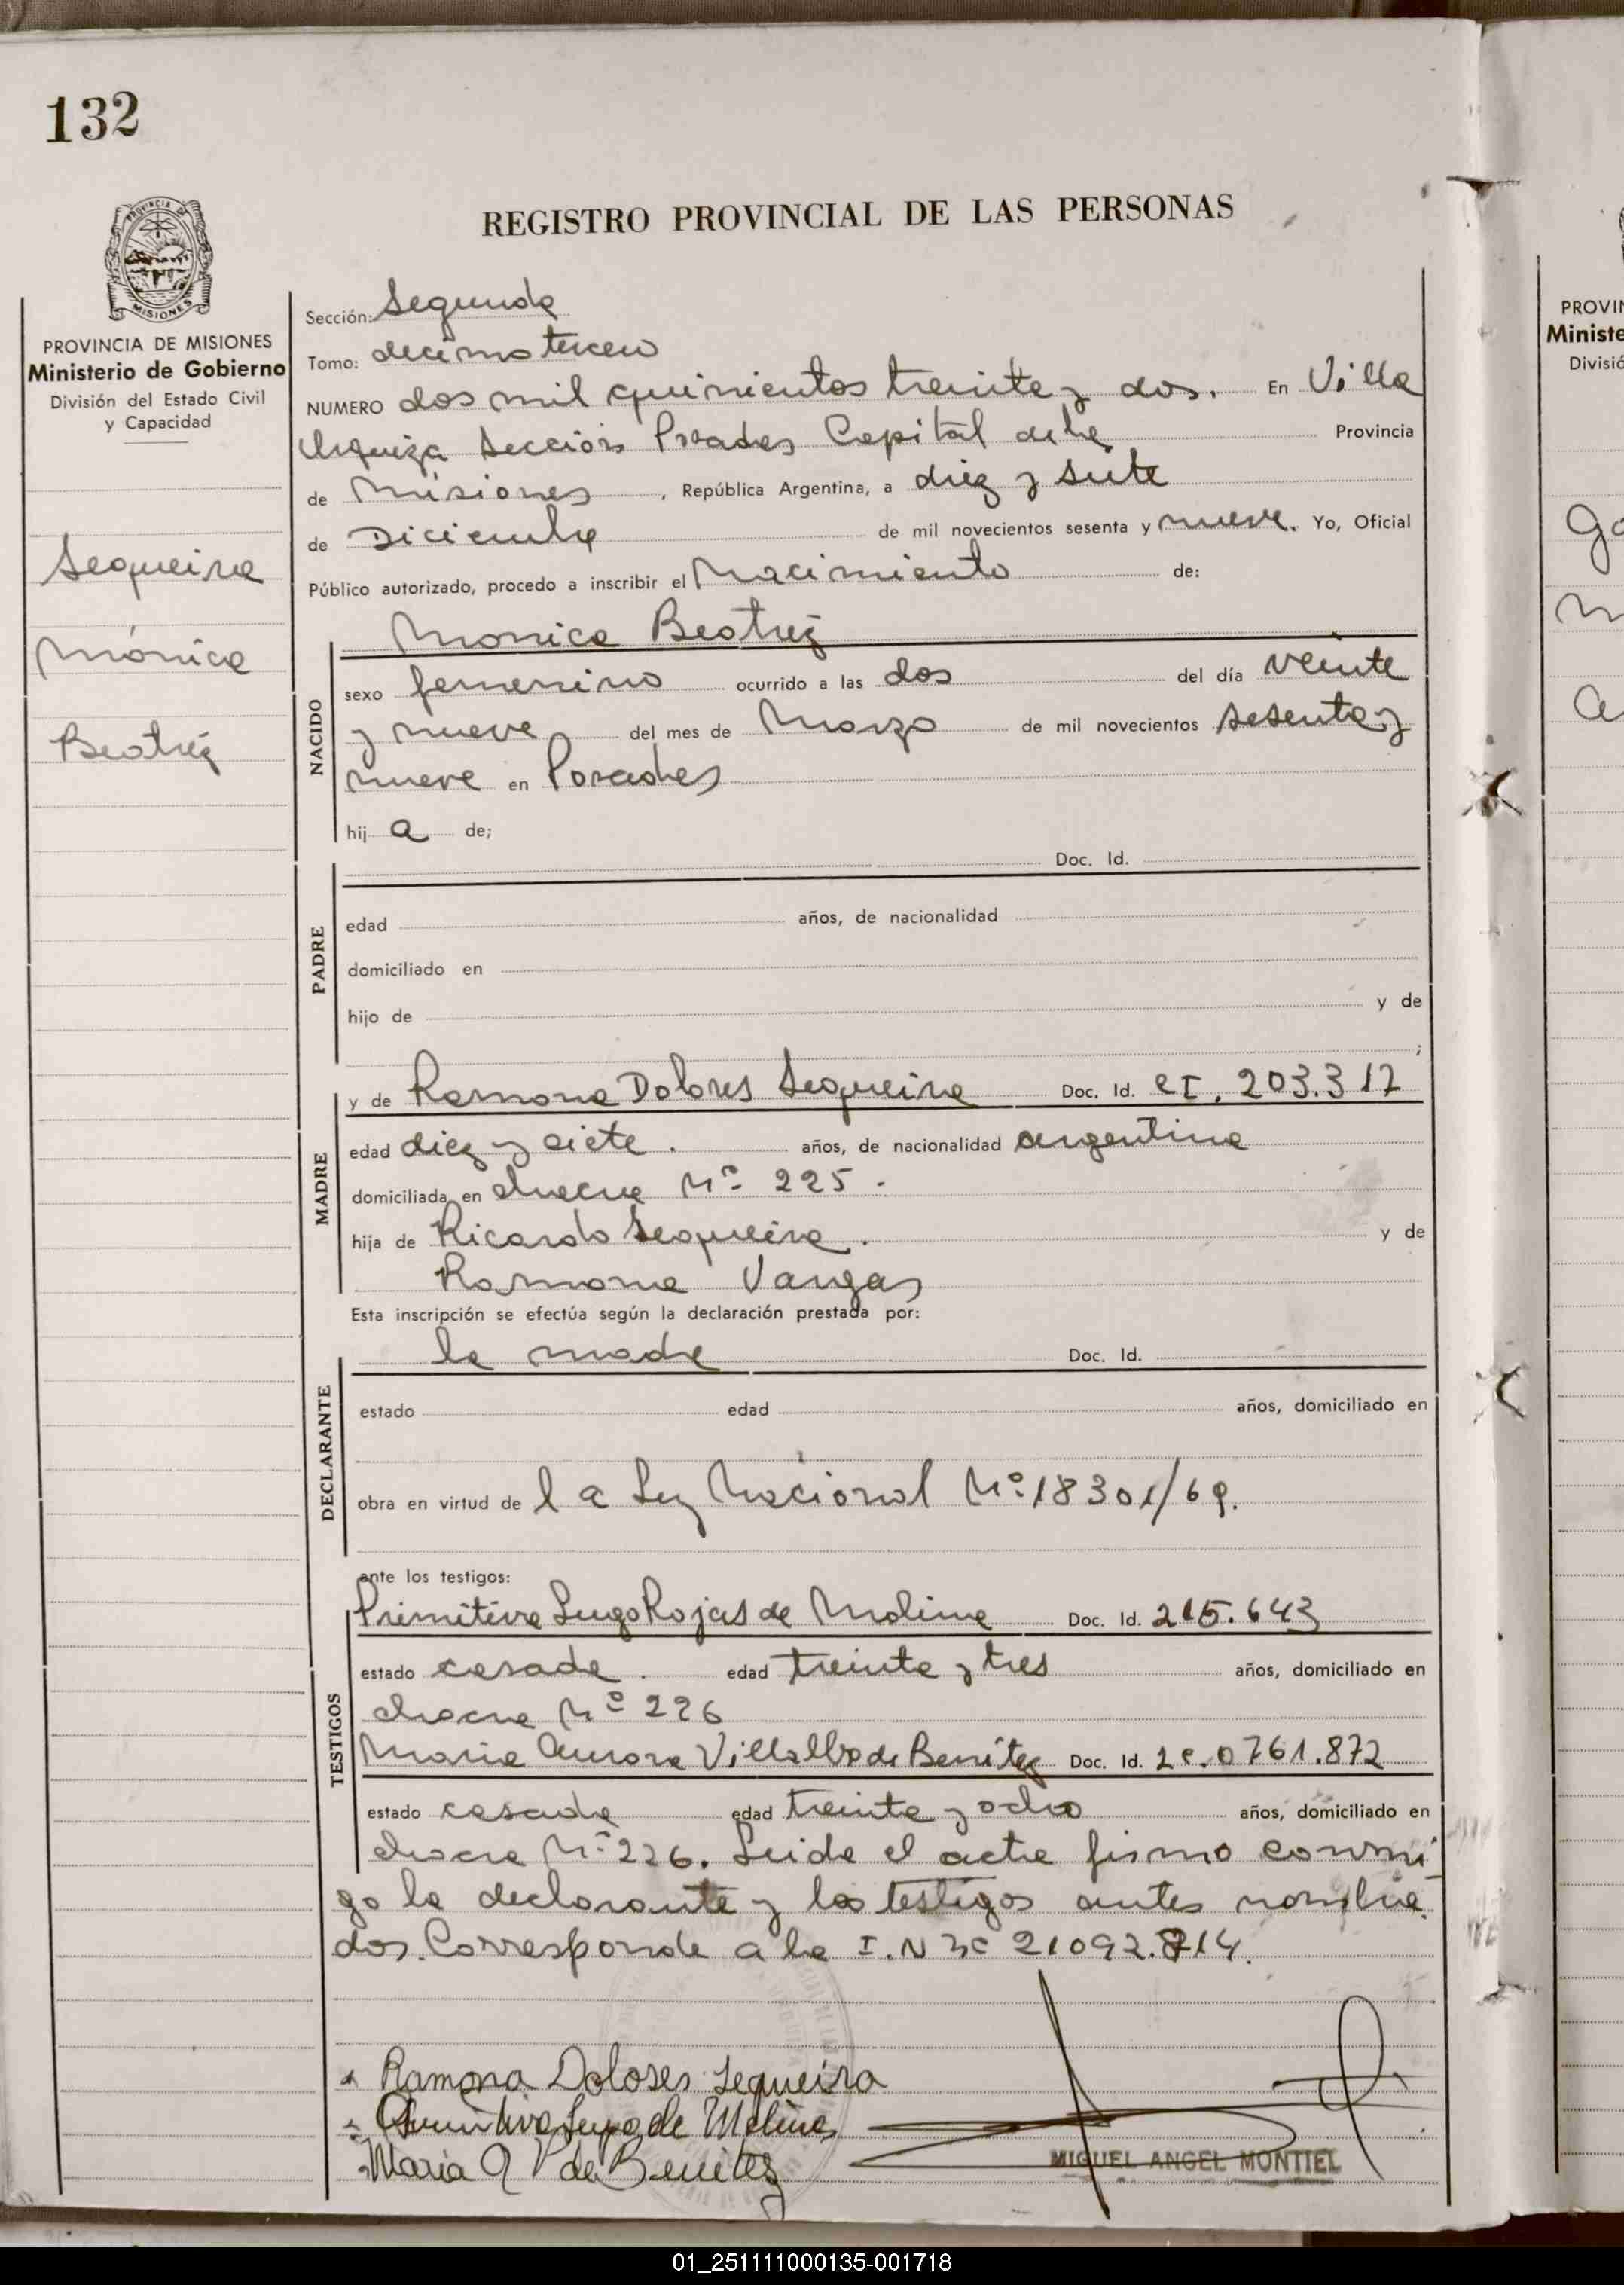 132
REGISTRO PROVINCIAL DE LAS PERSONAS
PROVINCIA DE
MISIONES
PROVINCIA DE MISIONES
Ministerio de Gobierno
División del Estado Civil
y Capacidad
Sequeira
Mónica
Beatriz
Sección: Segunda
Tomo: decimo tercero
NUMERO dos mil quinientos treinta y dos. En Villa
Urquiza Sección Posadas Capital de la Provincia
de Misiones, República Argentina, a diez y siete
de Diciembre de mil novecientos sesenta y nueve. Yo, Oficial
Público autorizado, procedo a inscribir el Nacimiento de:
Monica Beatriz
NACIDO
sexo femenino ocurrido a las dos del día veinte
y nueve del mes de Marzo de mil novecientos sesenta y
nueve en Posadas
hij a de;
PADRE
Doc. Id.
edad años, de nacionalidad
domiciliado en
hijo de y de
;
MADRE
y de Ramona Dolores Sequeira Doc. Id. CI. 203.317
edad diez y siete. años, de nacionalidad argentina
domiciliada en chacra Nº 225.
hija de Ricardo Sequeira. y de
Ramona Vargas
Esta inscripción se efectúa según la declaración prestada por:
DECLARANTE
la madre Doc. Id.
estado edad años, domiciliado en
obra en virtud de la Ley Nacional Nº 18301/69.
ante los testigos:
TESTIGOS
Primitiva Lugo Rojas de Molina Doc. Id. 215.643
estado casada. edad treinta y tres años, domiciliado en
chacra Nº 226
Maria Aurora Villalba de Benitez Doc. Id. 0761.872
estado casada edad treinta y ocho años, domiciliado en
chacra Nº 226. Leida el acta firmo conmi
go la declarante y los testigos antes nombra
dos. Corresponde a la I.N 21092.814.
Ramona Dolores Sequeira
Primitiva Lugo de Molina
Maria A V de Benitez
MIGUEL ANGEL MONTIEL
PROVIN
Ministe
Divisió
01_251111000135-001718